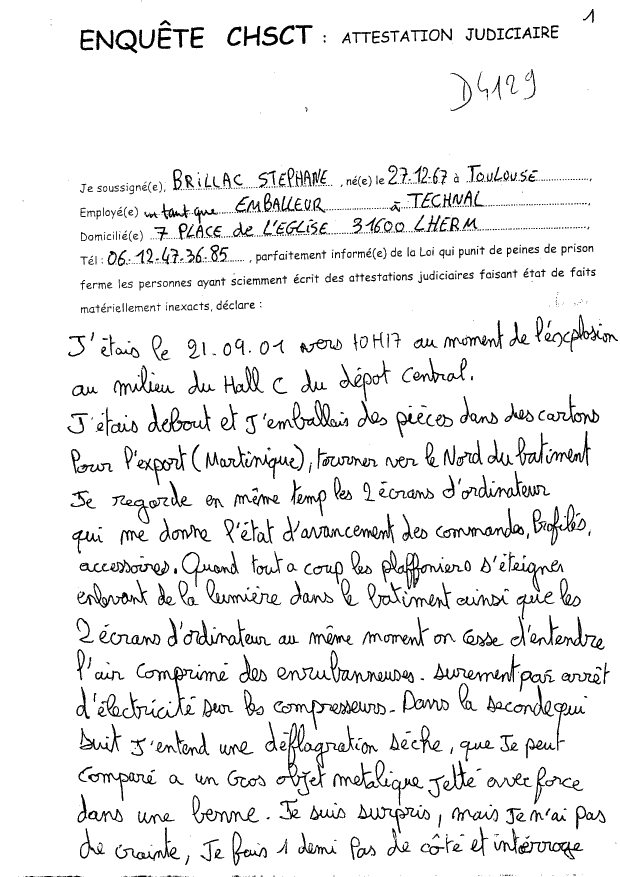 1
ENQUÊTE CHSCT : ATTESTATION JUDICIAIRE
D4129
Je soussigné(e), BRILLAC STEPHANE, né(e) le 27.12.67 à TOULOUSE
Employé(e) en tant que EMBALLEUR à TECHNAL
Domicilié(e) 7 PLACE de L'EGLISE 31600 LHERM
Tél : 06.12.47.36.85, parfaitement informé(e) de la Loi qui punit de peines de prison
ferme les personnes ayant sciemment écrit des attestations judiciaires faisant état de faits
matériellement inexacts, déclare :
J'étais le 21.09.01 vers 10H17 au moment de l'éxplosion
au milieu du Hall C du dépot Central.
J'étais debout et J'emballais des pièces dans des cartons
Pour l'export (Martinique), tourner ver le Nord du batiment
Je regarde en même temp les 2 écrans d'ordinateur
qui me donne l'état d'avancement des commandes, Profilés,
accessoires. Quand tout a coup les plaffoniers s'éteigner
enlevant de la lumière dans le batiment ainsi que les
2 écrans d'ordinateur au même moment on cesse d'entendre
l'air comprimé des enrubanneuses. surement par arrêt
d'électricité sur les compresseurs. Dans la seconde qui
suit J'entend une déflagration sèche, que Je peut
comparé a un Gros objet metalique Jetté avec force
dans une benne. Je suis surpris, mais Je n'ai pas
de crainte, Je fais 1 demi pas de côté et intérroge